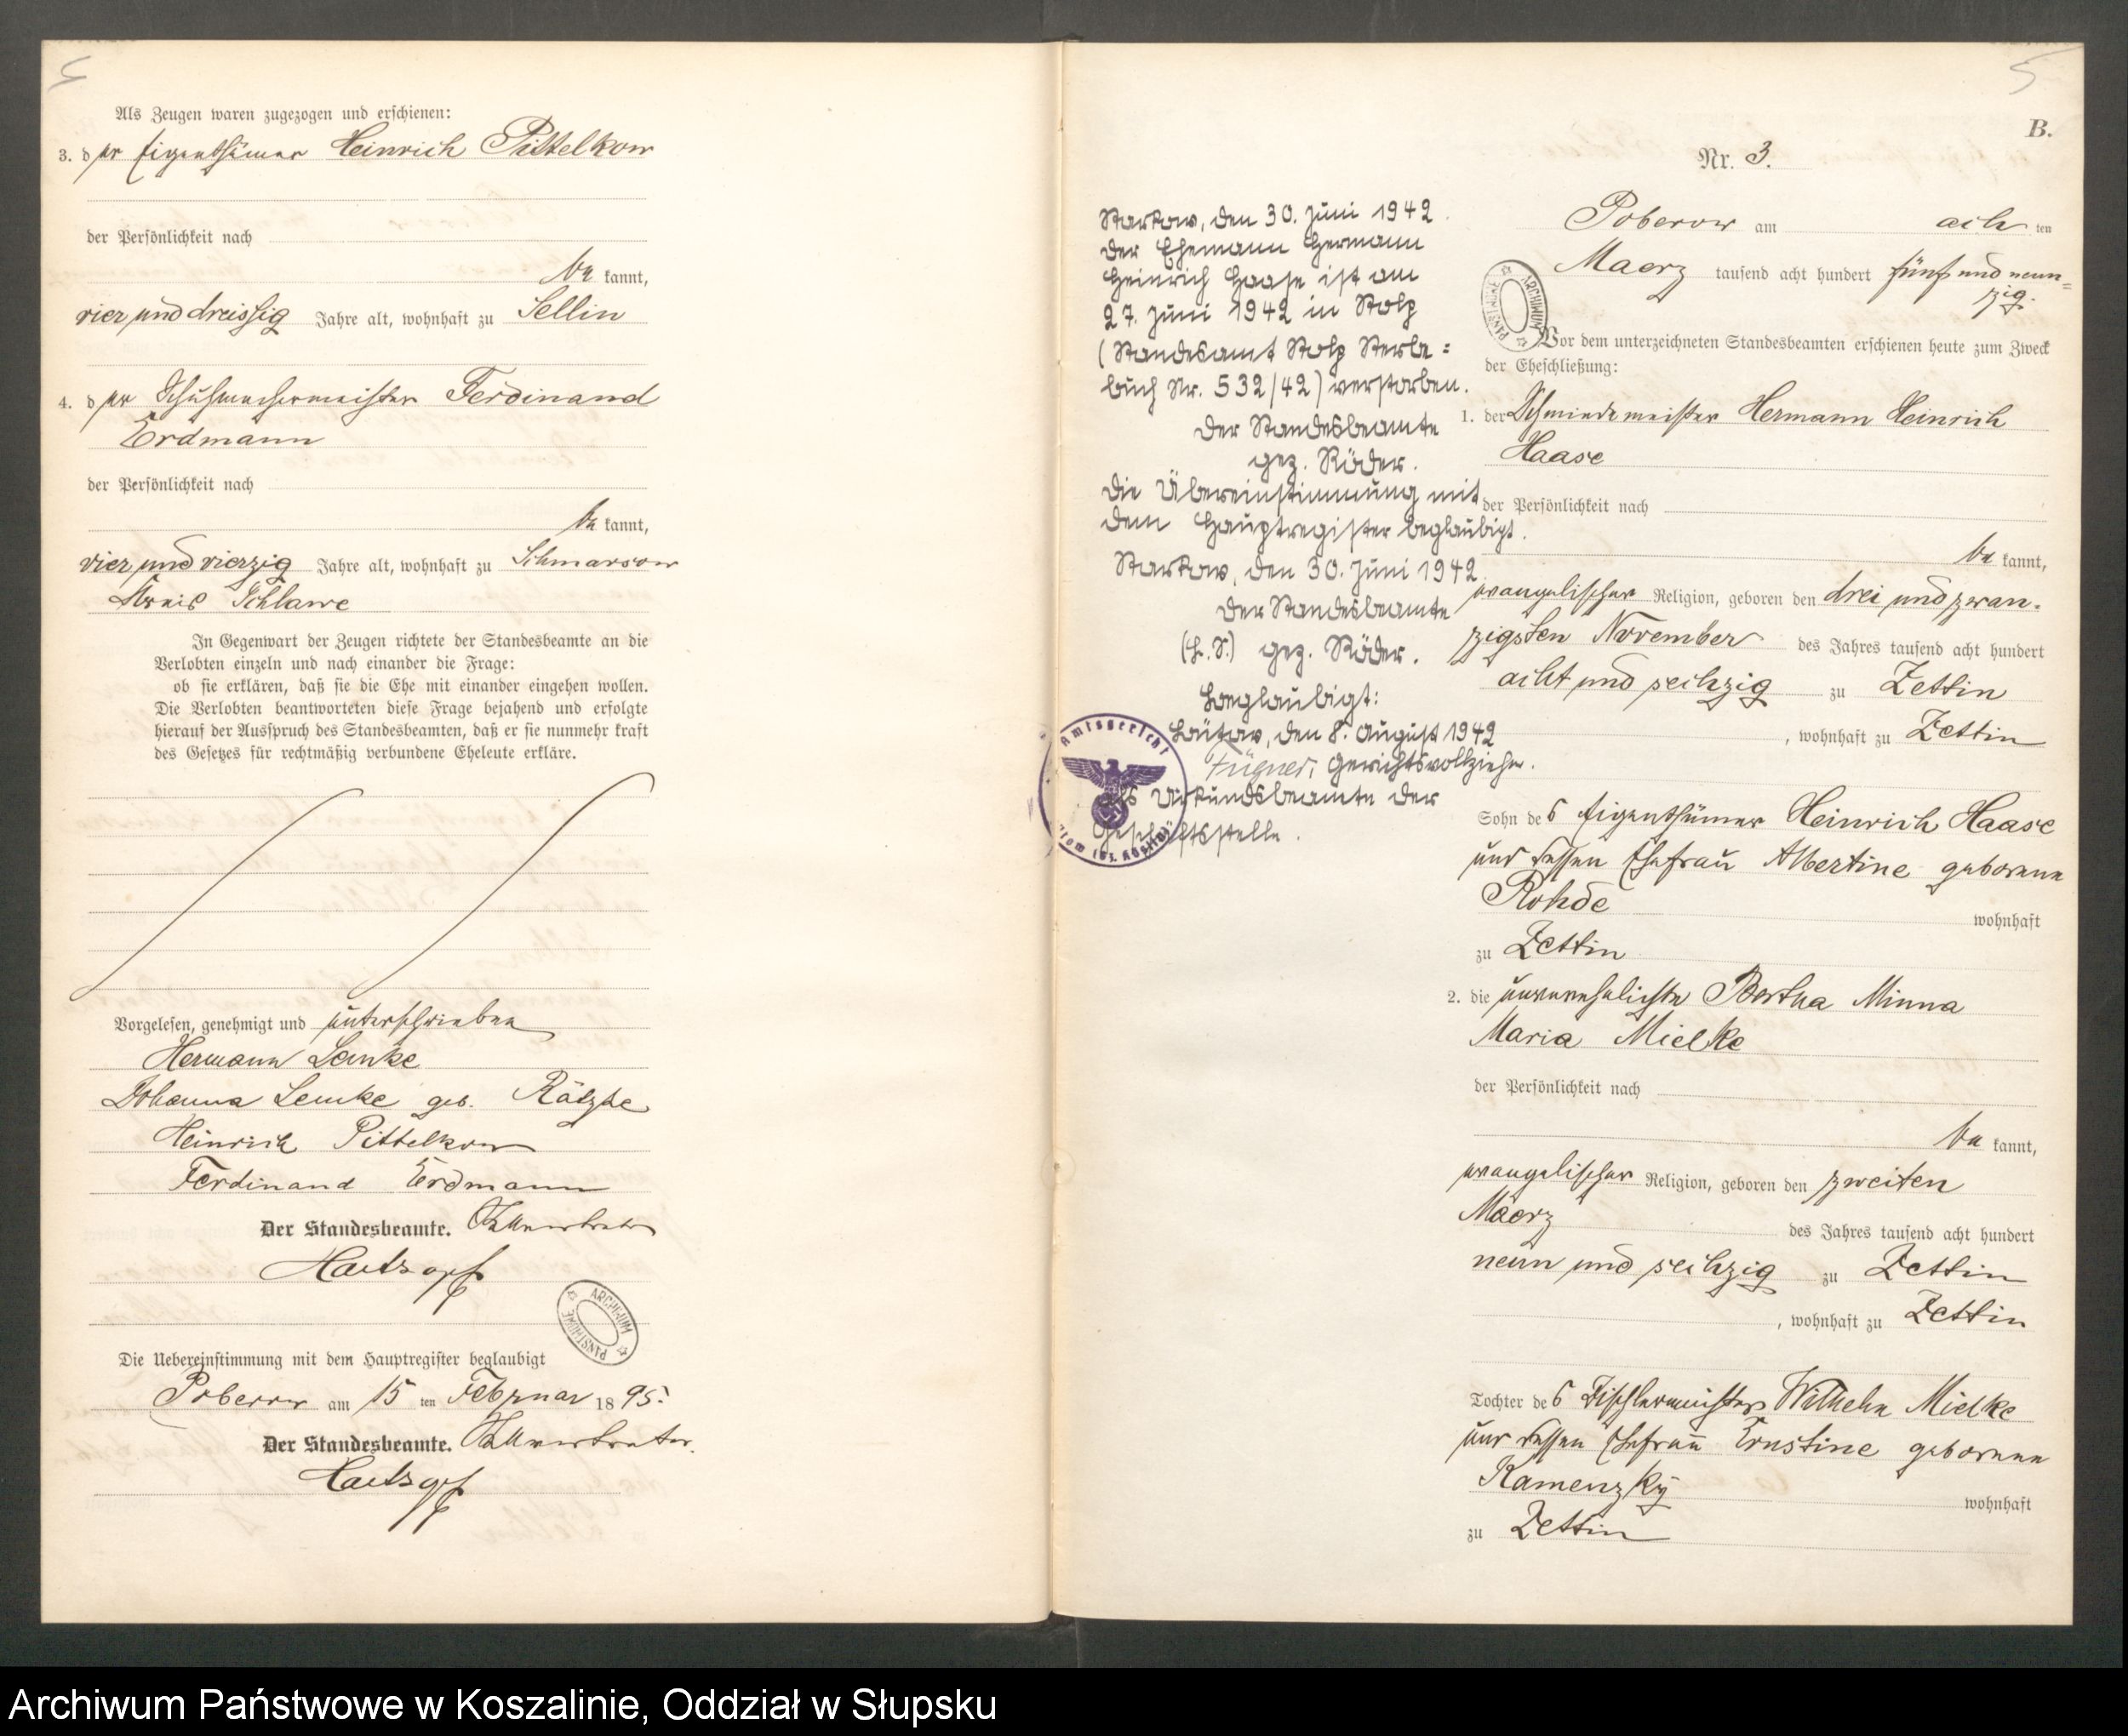 5
Als Zeugen waren zugezogen und erschienen:
3. der Eigenthümer Heinrich Pittelkow
der Persönlichkeit nach
be kannt,
vier und dreissig Jahre alt, wohnhaft zu Sellin
4. der Schuhmachermeister Ferdinand
Erdmann
der Persönlichkeit nach
be kannt,
vier und vierzig Jahre alt, wohnhaft zu Schmarsow
Kreis Schlawe
In Gegenwart der Zeugen richtete der Standesbeamte an die
Verlobten einzeln und nach einander die Frage:
ob sie erklären, daß sie die Ehe mit einander eingehen wollen.
Die Verlobten beantworteten diese Frage bejahend und erfolgte
hierauf der Ausspruch des Standesbeamten, daß er sie nunmehr kraft
des Gesetzes für rechtmäßig verbundene Eheleute erkläre.
Vorgelesen, genehmigt und unterschrieben
Hermann Lemke
Johanna Lemke geb. Rätzke
Heinrich Pittelkow
Ferdinand Erdmann
Der Standesbeamte. Stellvertreter
ARCHIWUM PAŃSTWOWE
Die Uebereinstimmung mit dem Hauptregister beglaubigt
Poberow am 15 ten Februar 18 95.
Der Standesbeamte. Stellvertreter.
5
B.
Nr. 3.
Poberow am acht ten
Maerz tausend acht hundert fünf und neun=
zig.
ARCHIWUM PAŃSTWOWE
Vor dem unterzeichneten Standesbeamten erschienen heute zum Zweck
der Eheschließung:
1. der Schmiedemeister Hermann Heinrich
Haase
der Persönlichkeit nach
be kannt,
evangelischer Religion, geboren den drei und zwan-
zigsten November des Jahres tausend acht hundert
acht und sechzig zu Zettin
, wohnhaft zu Zettin
Sohn des Eigenthümer Heinrich Haase
und dessen Ehefrau Albertine geborene
Rohde wohnhaft
zu Zettin
2. die unverehelichte Bertha Minna
Maria Mielke
der Persönlichkeit nach
be kannt,
evangelischer Religion, geboren den zweiten
Maerz des Jahres tausend acht hundert
neun und sechzig zu Zettin
, wohnhaft zu Zettin
Tochter des Tischlermeisters Wilhelm Mielke
und dessen Ehefrau Ernstine geborene
Kamenzky wohnhaft
zu Zettin
Starkow, den 30. Juni 1942.
Der Ehemann Hermann
Heinrich Haase ist am
27. Juni 1942 in Stolp
(Standesamt Stolp Sterbe=
buch Nr. 532/42) verstorben.
Der Standesbeamte
gez. Röder.
Die Übereinstimmung mit
dem Hauptregister beglaubigt.
Starkow, den 30. Juni 1942.
Der Standesbeamte
(L.S.) gez. Röder.
Beglaubigt:
Bütow, den 8. August 1942
Fügner, Gerichtsvollzieher.
als Urkundsbeamte der
Geschäftsstelle.
Amtsgericht
Archiwum Państwowe w Koszalinie, Oddział w Słupsku